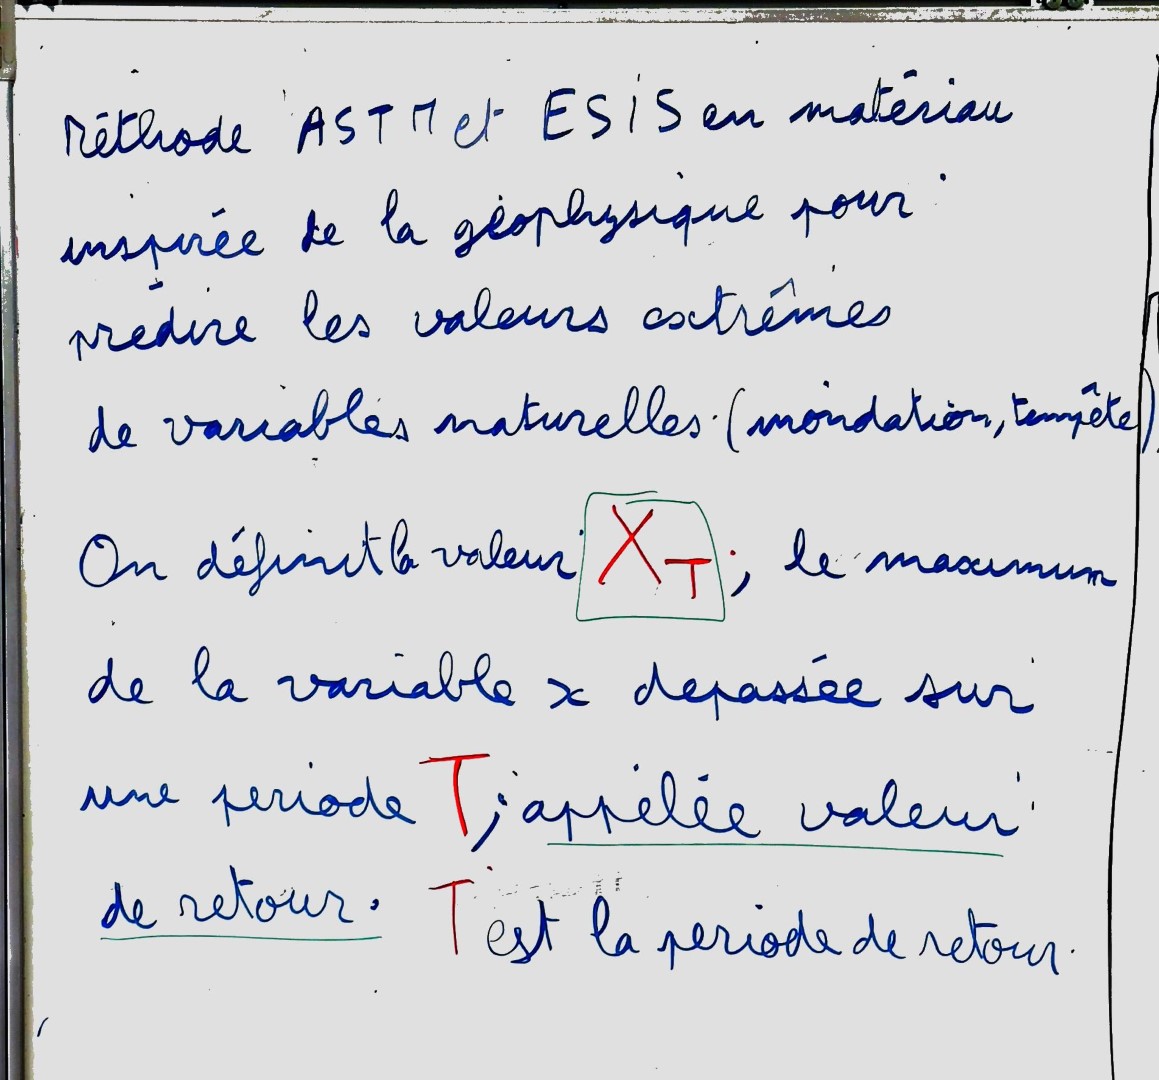 Méthode ASTM et ESIS en matériau
inspirée de la géophysique pour
prédire les valeurs extrêmes
de variables naturelles. (inondation, tempête)
On définit la valeur X_T ; le maximum
de la variable x depassée sur
une periode T ; appélée valeur
de retour. T est la periode de retour.